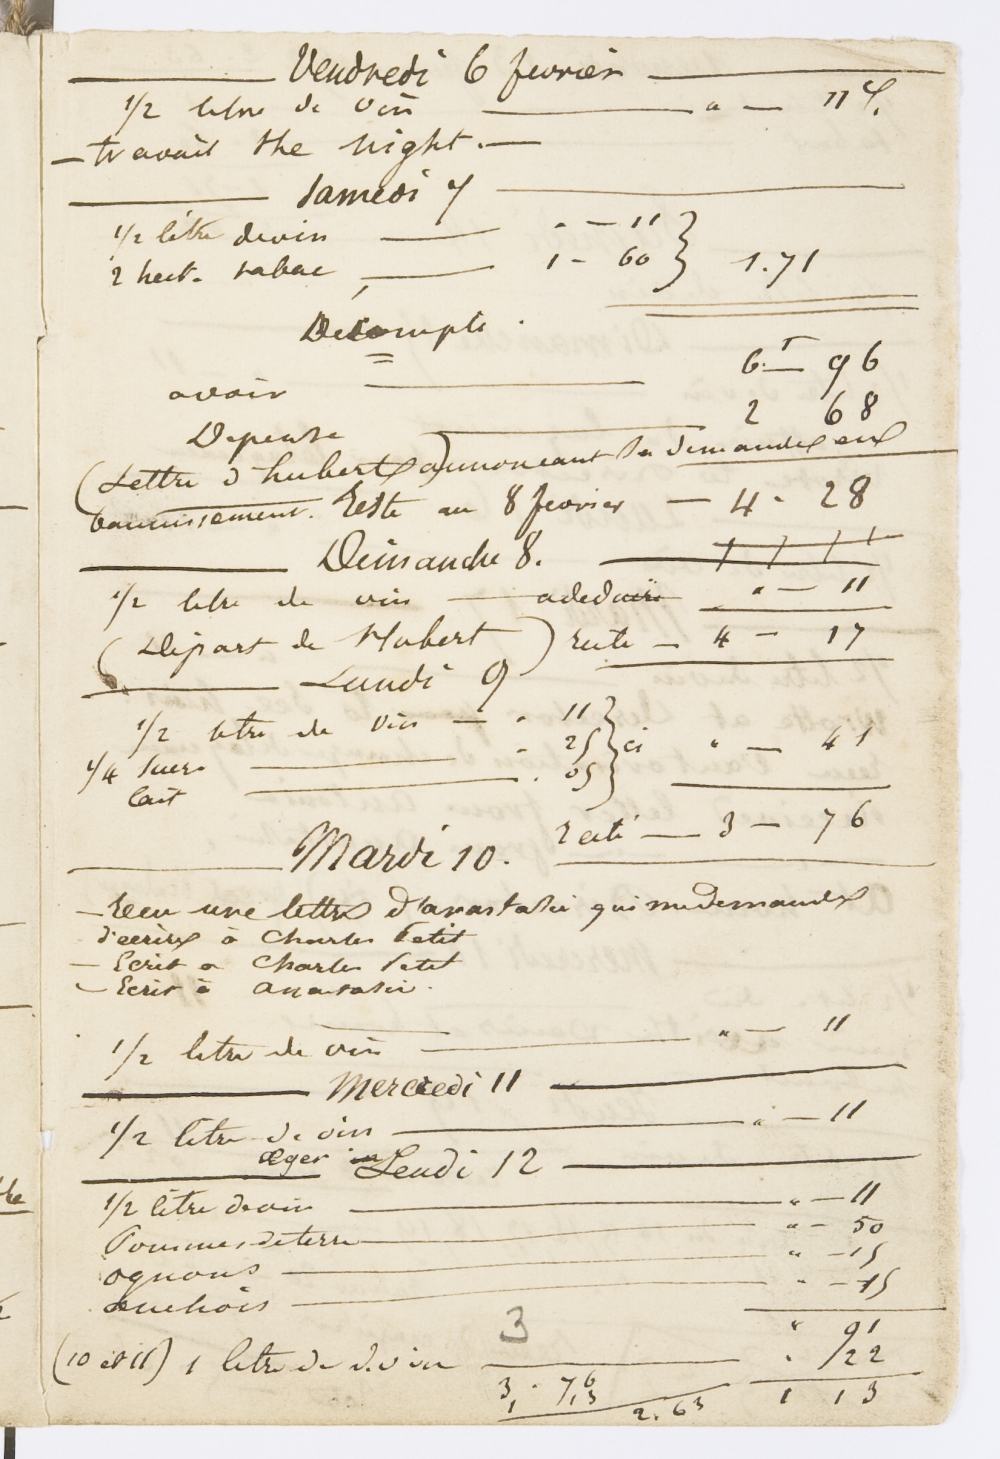 Vendredi 6 fevrier
1/2 litre de vin " — 11 c.
— travail the night. —
Samedi 7
1/2 litre de vin " — 11
2 hect. tabac 1 — 60 } 1.71
Décompte.
avoir 6 f — 96
Depense 2 68
(Lettre d'hubert annoncant sa demande en
bannissement. Reste au 8 fevrier — 4 - 28
Dimanche 8.
1/2 litre de vin — a deduire " — 11
(Départ de Hubert) reste — 4 — 17
Lundi 9
1/2 litre de vin — " 11
1/4 sucre " 25 } ci " — 41
lait " 05
reste — 3 — 76
Mardi 10.
— Recu une lettre d'anastasie qui me demande
d'ecrire à Charles Petit
— Ecrit a Charles Petit
— Ecrit à anastasie.
1/2 litre de vin " — 11
Mercredi 11
1/2 litre de vin " — 11
æger Jeudi 12
1/2 litre de vin " — 11
Pommes de terre " — 50
ognons " — 15
anchois " — 15
3
" 91
(10 et 11) 1 litre de vin " 22
3 . 76 1 13
1, 13 2. 63